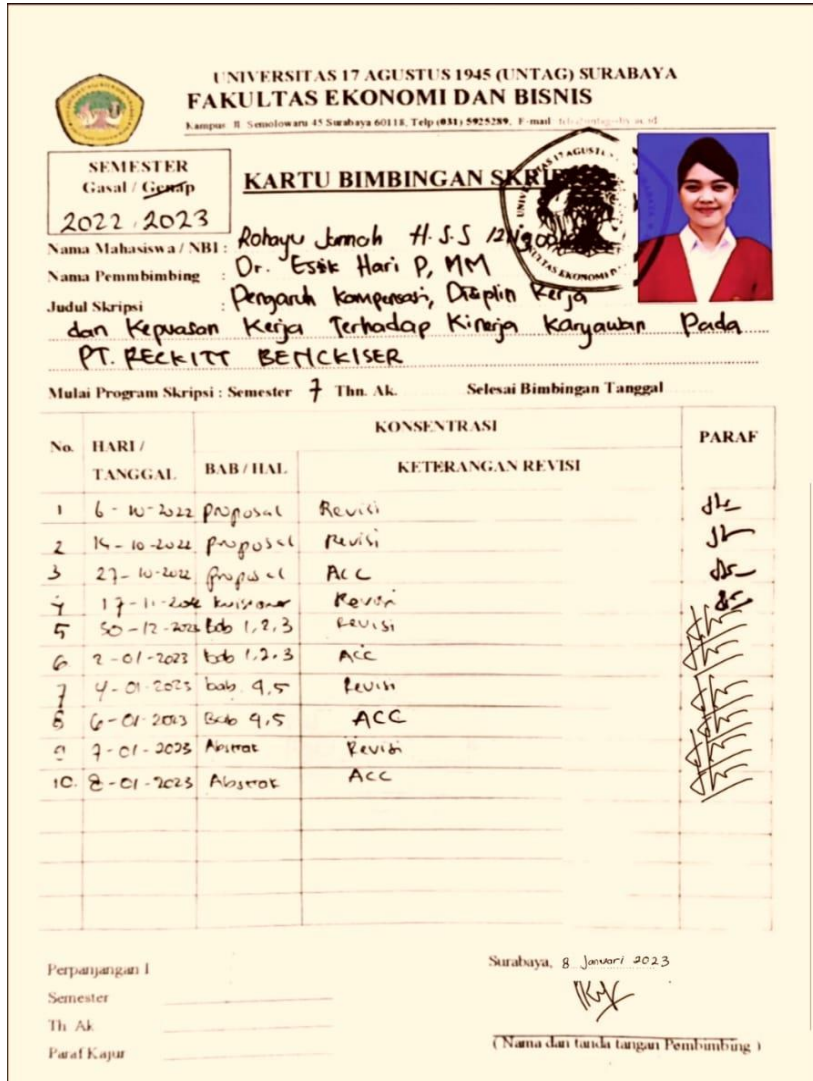 UNIVERSITAS 17 AGUSTUS 1945 (UNTAG) SURABAYA
FAKULTAS EKONOMI DAN BISNIS
Kampus : Jl. Semolowaru 45 Surabaya 60118, Telp (031) 5925289, E-mail
SEMESTER
Gasal / Genap
2022 2023
KARTU BIMBINGAN
Nama Mahasiswa / NBI : Rohayu Jamoh H.S.S
Nama Pemmbimbing : Dr. Estik Hari P, MM
Judul Skripsi : Pengaruh Kompensasi, Disiplin Kerja
dan Kepuasan Kerja Terhadap Kinerja Karyawan Pada
PT. RECKITT BENCKISER
Mulai Program Skripsi : Semester 7 Thn. Ak. Selesai Bimbingan Tanggal
No. HARI / TANGGAL KONSENTRASI PARAF
BAB / HAL KETERANGAN REVISI
1 6 - 10 - 2022 proposal Revisi
2 14 - 10 - 2022 proposal Revisi
3 27 - 10 - 2022 proposal ACC
4 17 - 11 - 2022 kuisioner Revisi
5 30 - 12 - 2022 Bab 1, 2, 3 Revisi
6 2 - 01 - 2023 bab 1, 2, 3 ACC
7 4 - 01 - 2023 bab 4,5 Revisi
8 6 - 01 - 2023 Bab 4,5 ACC
9 7 - 01 - 2023 Abstrak Revisi
10. 8 - 01 - 2023 Abstrak ACC
Perpanjangan I
Semester
Th. Ak
Paraf Kajur
Surabaya, 8 Januari 2023
( Nama dan tanda tangan Pembimbing )